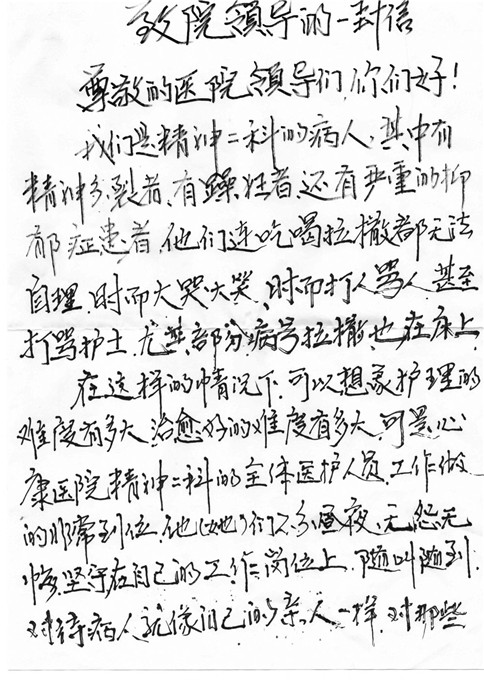 致院领导的一封信
尊敬的医院领导们,你们好!
我们是精神二科的病人,其中有
精神分裂者、有躁狂者、还有严重的抑
郁症患者,他们连吃喝拉撒都无法
自理,时而大哭大笑、时而打人骂人甚至
打骂护士,尤其部分病号拉撒也在床上
在这样的情况下,可以想象护理的
难度有多大,治愈好的难度有多大,可是心
康医院精神二科的全体医护人员,工作做
的非常到位,他(她)们不分昼夜、无怨无
悔坚守在自己的工作岗位上,随叫随到,
对待病人就像自己的亲人一样,对那些